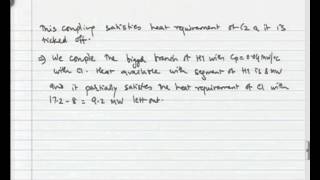 This coupling satisfies heat requirement of C2 a it is
ticked off.
2) We couple the bigger branch of H1 with Cp = 0.04 MW/°C
with C1. Heat available with segment of H1 is 8 MW
and it partially satisfies the heat requirement of C1 with
17.2 - 8 = 9.2 MW left out.